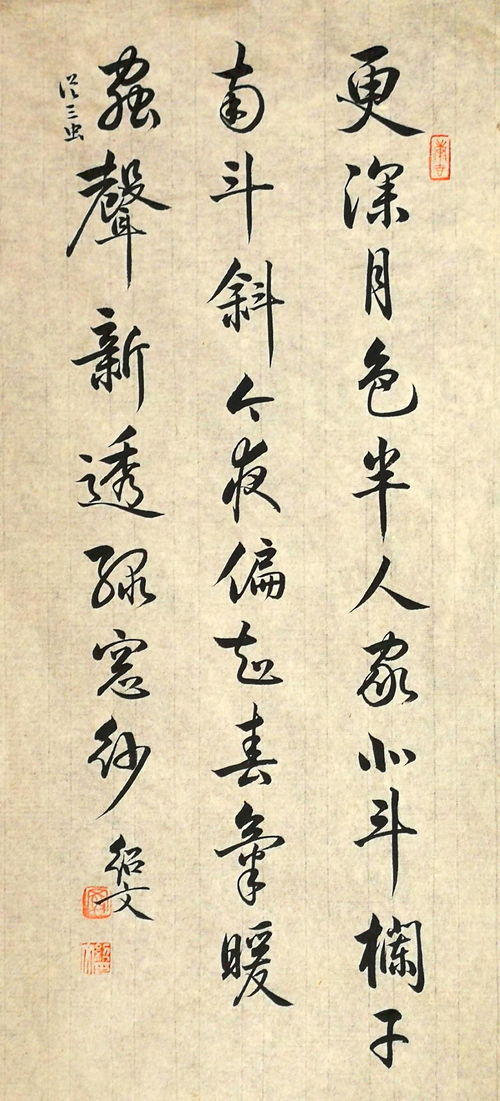 更深月色半人家北斗欄干
南斗斜今夜偏知春氣暖
蟲聲新透綠窗紗
從三虫
紹文